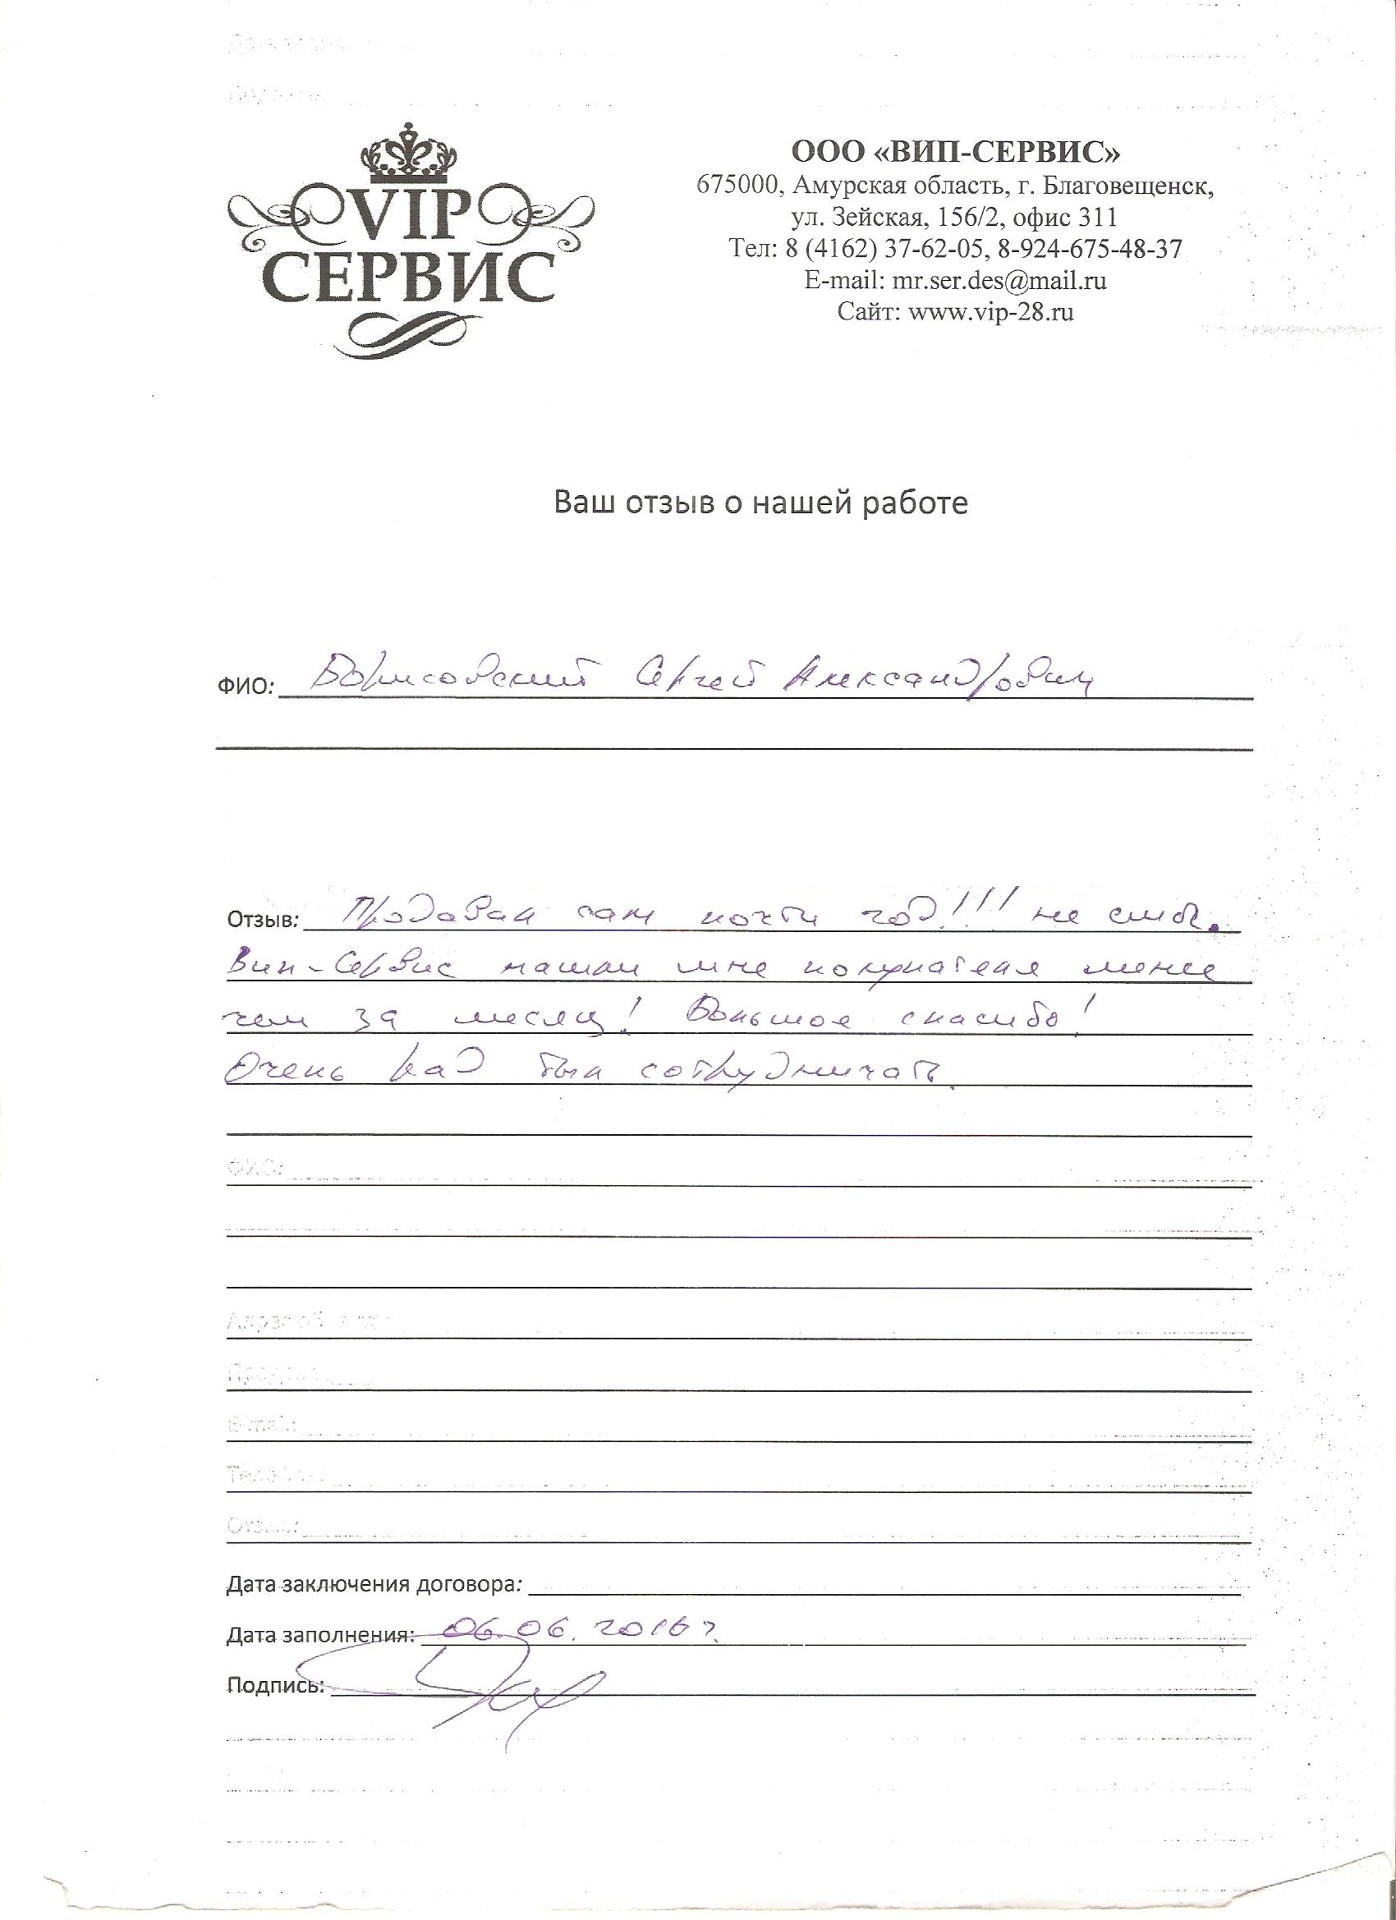 VIP
СЕРВИС
ООО «ВИП-СЕРВИС»
675000, Амурская область, г. Благовещенск,
ул. Зейская, 156/2, офис 311
Тел: 8 (4162) 37-62-05, 8-924-675-48-37
E-mail: mr.ser.des@mail.ru
Сайт: www.vip-28.ru
Ваш отзыв о нашей работе
ФИО: Борисовский Сергей Александрович
Отзыв: Продавал сам почти год!!! не смог.
Вип-Сервис нашли мне покупателя менее
чем за месяц! Большое спасибо!
Очень рад был сотрудничать.
ФИО:
E-mail:
Отзыв:
Дата заключения договора:
Дата заполнения: 06.06.2016 г.
Подпись: